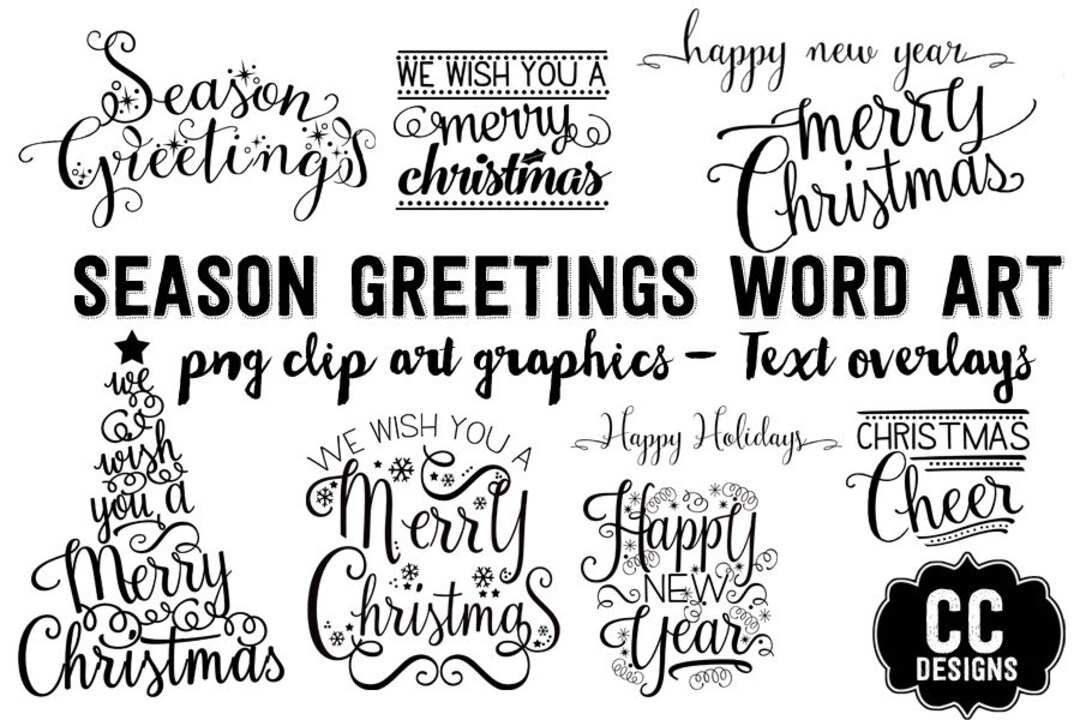 Season
Greetings
WE WISH YOU A
merry
christmas
happy new year
merry
Christmas
SEASON GREETINGS WORD ART
png clip art graphics – Text overlays
we
wish
you a
Merry
Christmas
WE WISH YOU A
Merry
Christmas
Happy Holidays
Happy
NEW
Year
CHRISTMAS
Cheer
CC
DESIGNS